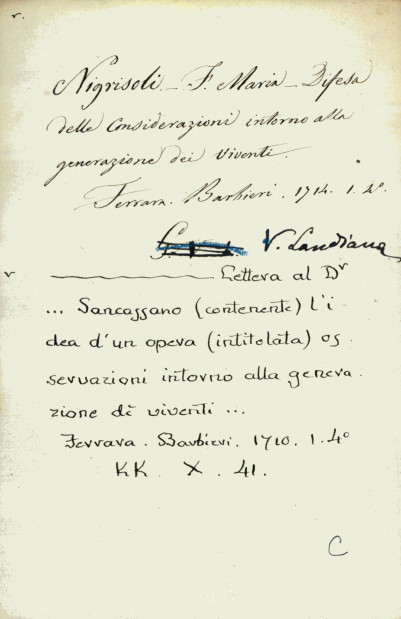 v.
Nigrisoli - F. Maria - Difesa
delle Considerazioni intorno alla
generazione dei viventi.
Ferrara. Barbieri. 1714. 1. 4º.
V. Landiana
v
Lettera al Dr
... Sancassano (contenente) l'i
dea d'un opera (intitolata) os
servazioni intorno alla genera.
zione dè viventi ...
Ferrara. Barbieri. 1710. 1. 4º
KK. X. 41.
C